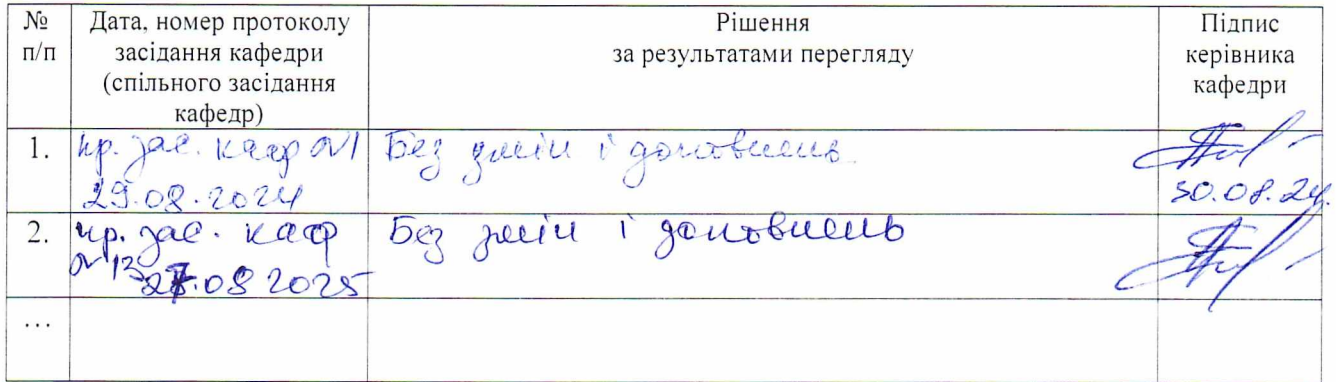 № п/п
Дата, номер протоколу засідання кафедри (спільного засідання кафедр)
Рішення за результатами перегляду
Підпис керівника кафедри
1.
пр. зас. каф №1
29.08.2024
Без змін і доповнень
30.08.24.
2.
пр. зас. каф
№ 13 27.08 2025
Без змін і доповнень
...